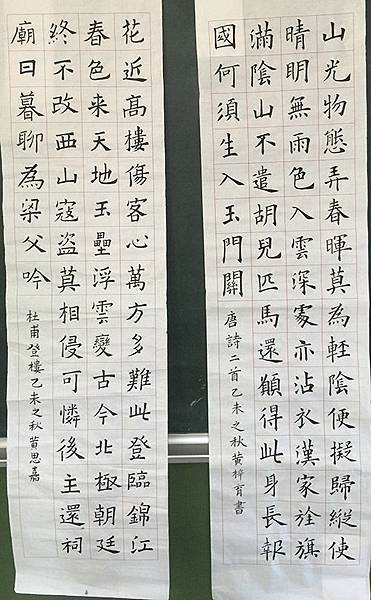 山光物態弄春暉莫為輕陰便擬歸縱使
晴明無雨色入雲深處亦沾衣漢家旌旗
滿陰山不遣胡兒匹馬還願得此身長報
國何須生入玉門關
唐詩二首乙未之秋黃梓育書
花近高樓傷客心萬方多難此登臨錦江
春色来天地玉壘浮雲變古今北極朝廷
終不改西山寇盜莫相侵可憐後主還祠
廟日暮聊為梁父吟
杜甫登樓乙未之秋黃思嘉